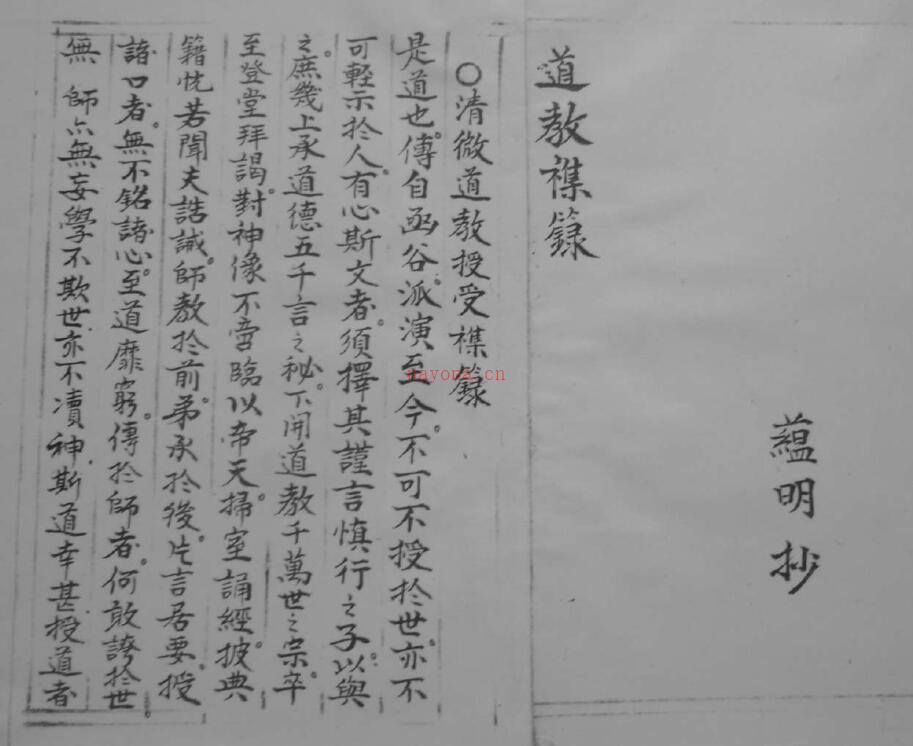 蘊明抄
道教襍籙
○清微道教授受襍籙
是道也。傳自函谷。派演至今。不可不授於世。亦不
可輕示於人。有心斯文者。須擇其謹言慎行之子。以與
之。庶幾上承道德五千言之秘。下開道教千萬世之宗。卒
至登堂拜謁。對神像不啻臨以帝天。掃室誦經。披典
籍恍若聞夫誥誡。師教於前。弟承於後。片言居要。授
諸口者。無不銘諸心。至道靡窮。傳於師者。何敢誇於世。
無師亦無妄學不欺世亦不瀆神。斯道幸甚。授道者
nayona.cn